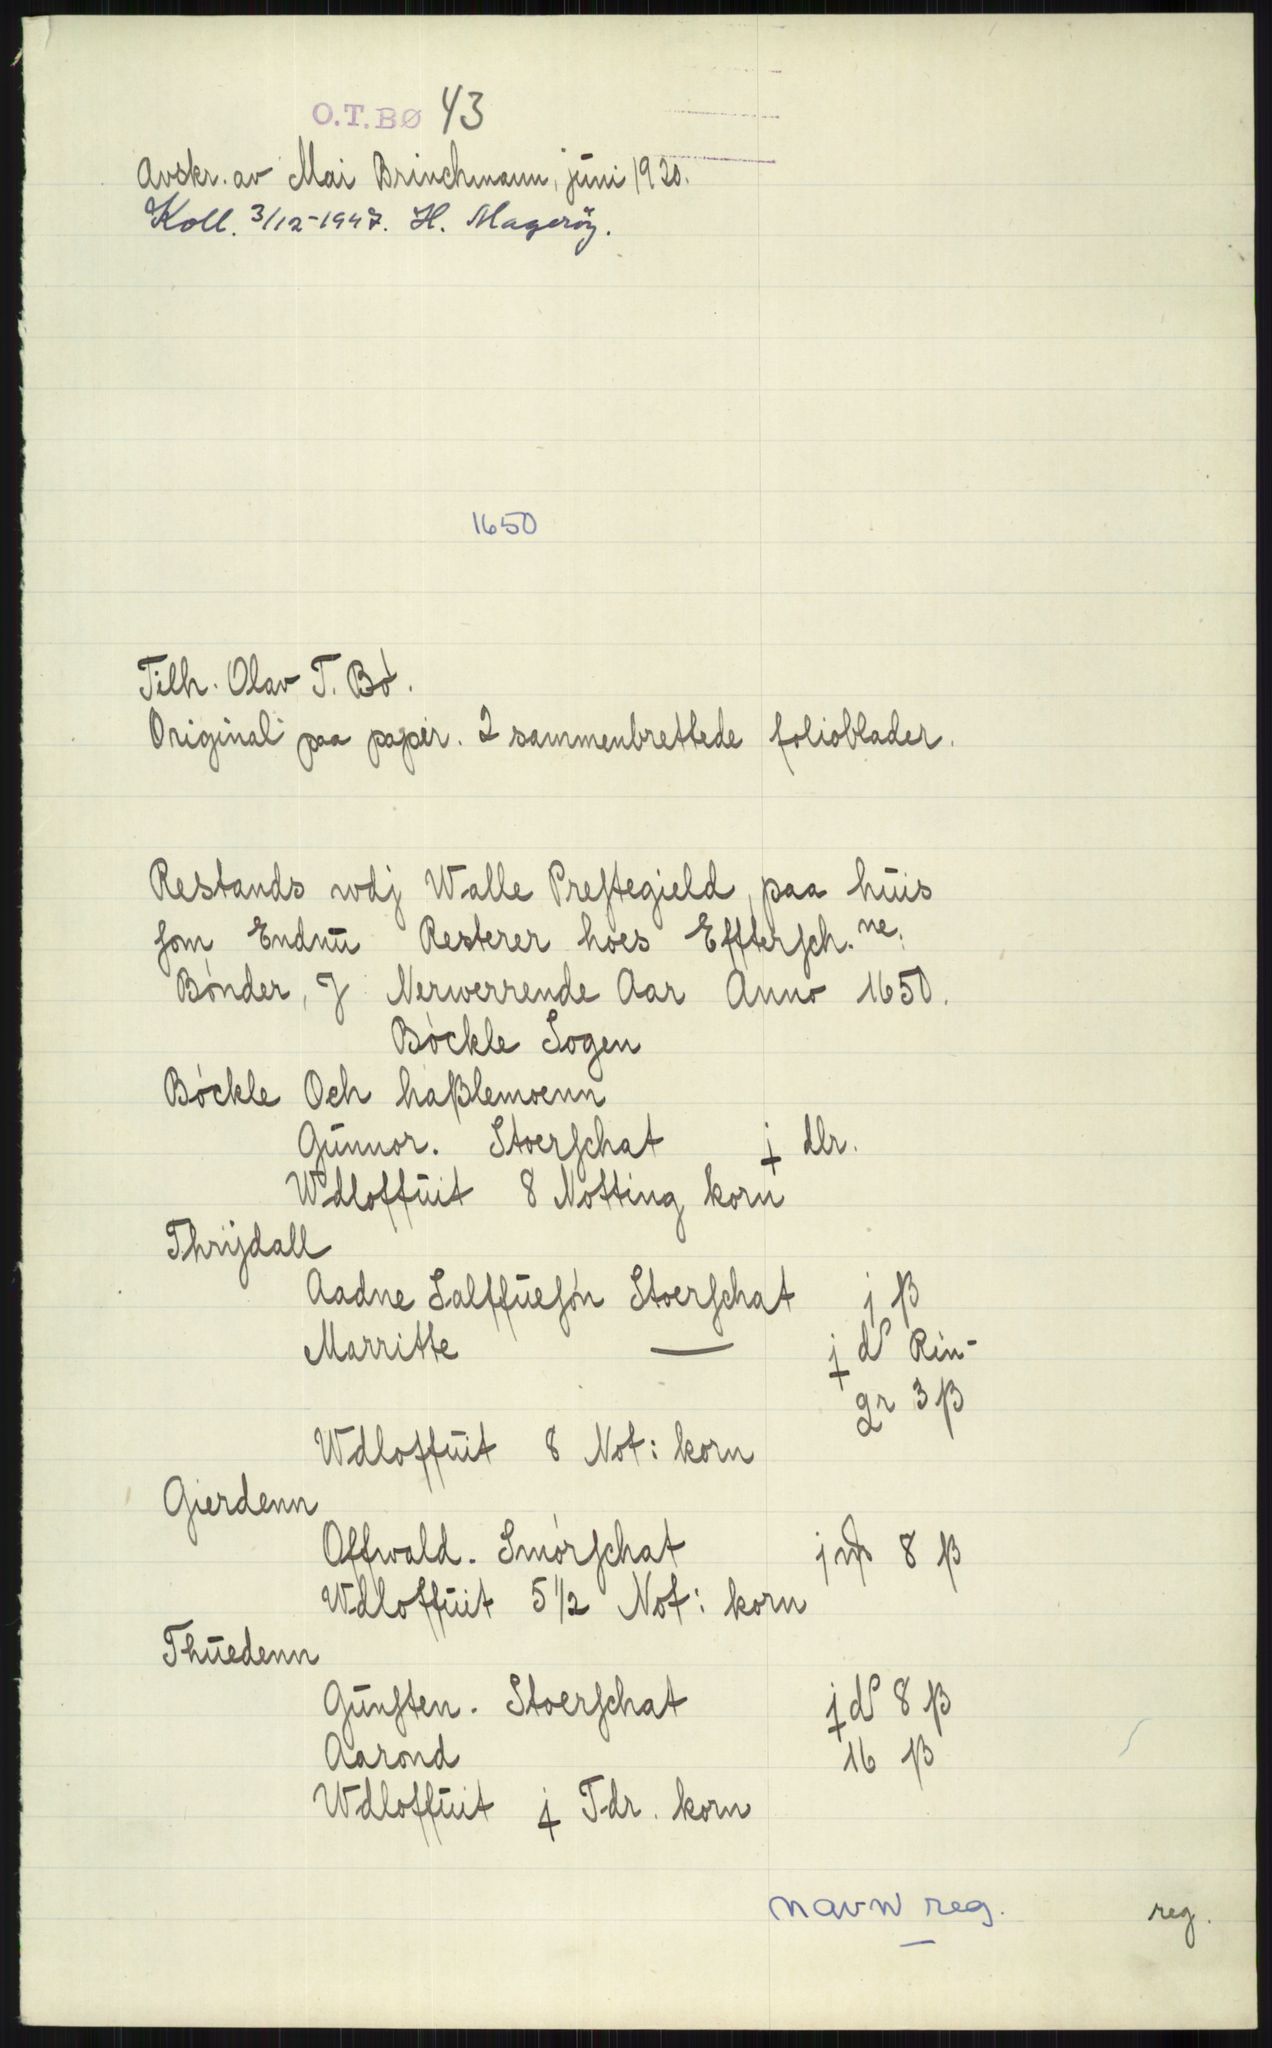 O.T.BØ 43
Avskr. av Mai Brinchmann, juni 1920.
Koll. 3/12-1947. H. Magerøy.
1650
Tilh. Olav T. Bø.
Original paa papir. 2 sammenbrettede folioblader.
Restands wdj Walle Prestegield, paa huis
som Endnu Resterer hoes Efftersch.ne:
Bønder, J Nerwerrende Aar Anno 1650.
Bøckle Sogen
Bøckle Och haßlemoenn
Gunnor. Stoerschat j dlr.
Wdloffuit 8 Notting korn
Thrijdall
Aadne Salffuesøn Stoerschat j ß
Marritte — j d Rin-
gr 3 ß
Wdloffuit 8 Not: korn
Gierdenn
Offwald. Smørschat j 8 ß
Wdloffuit 5 1/2 Not: korn
Thuedenn
Gunsten. Stoerschat j d 8 ß
Aarond 16 ß
Wdloffuit j Tdr. korn
navn reg.
reg.